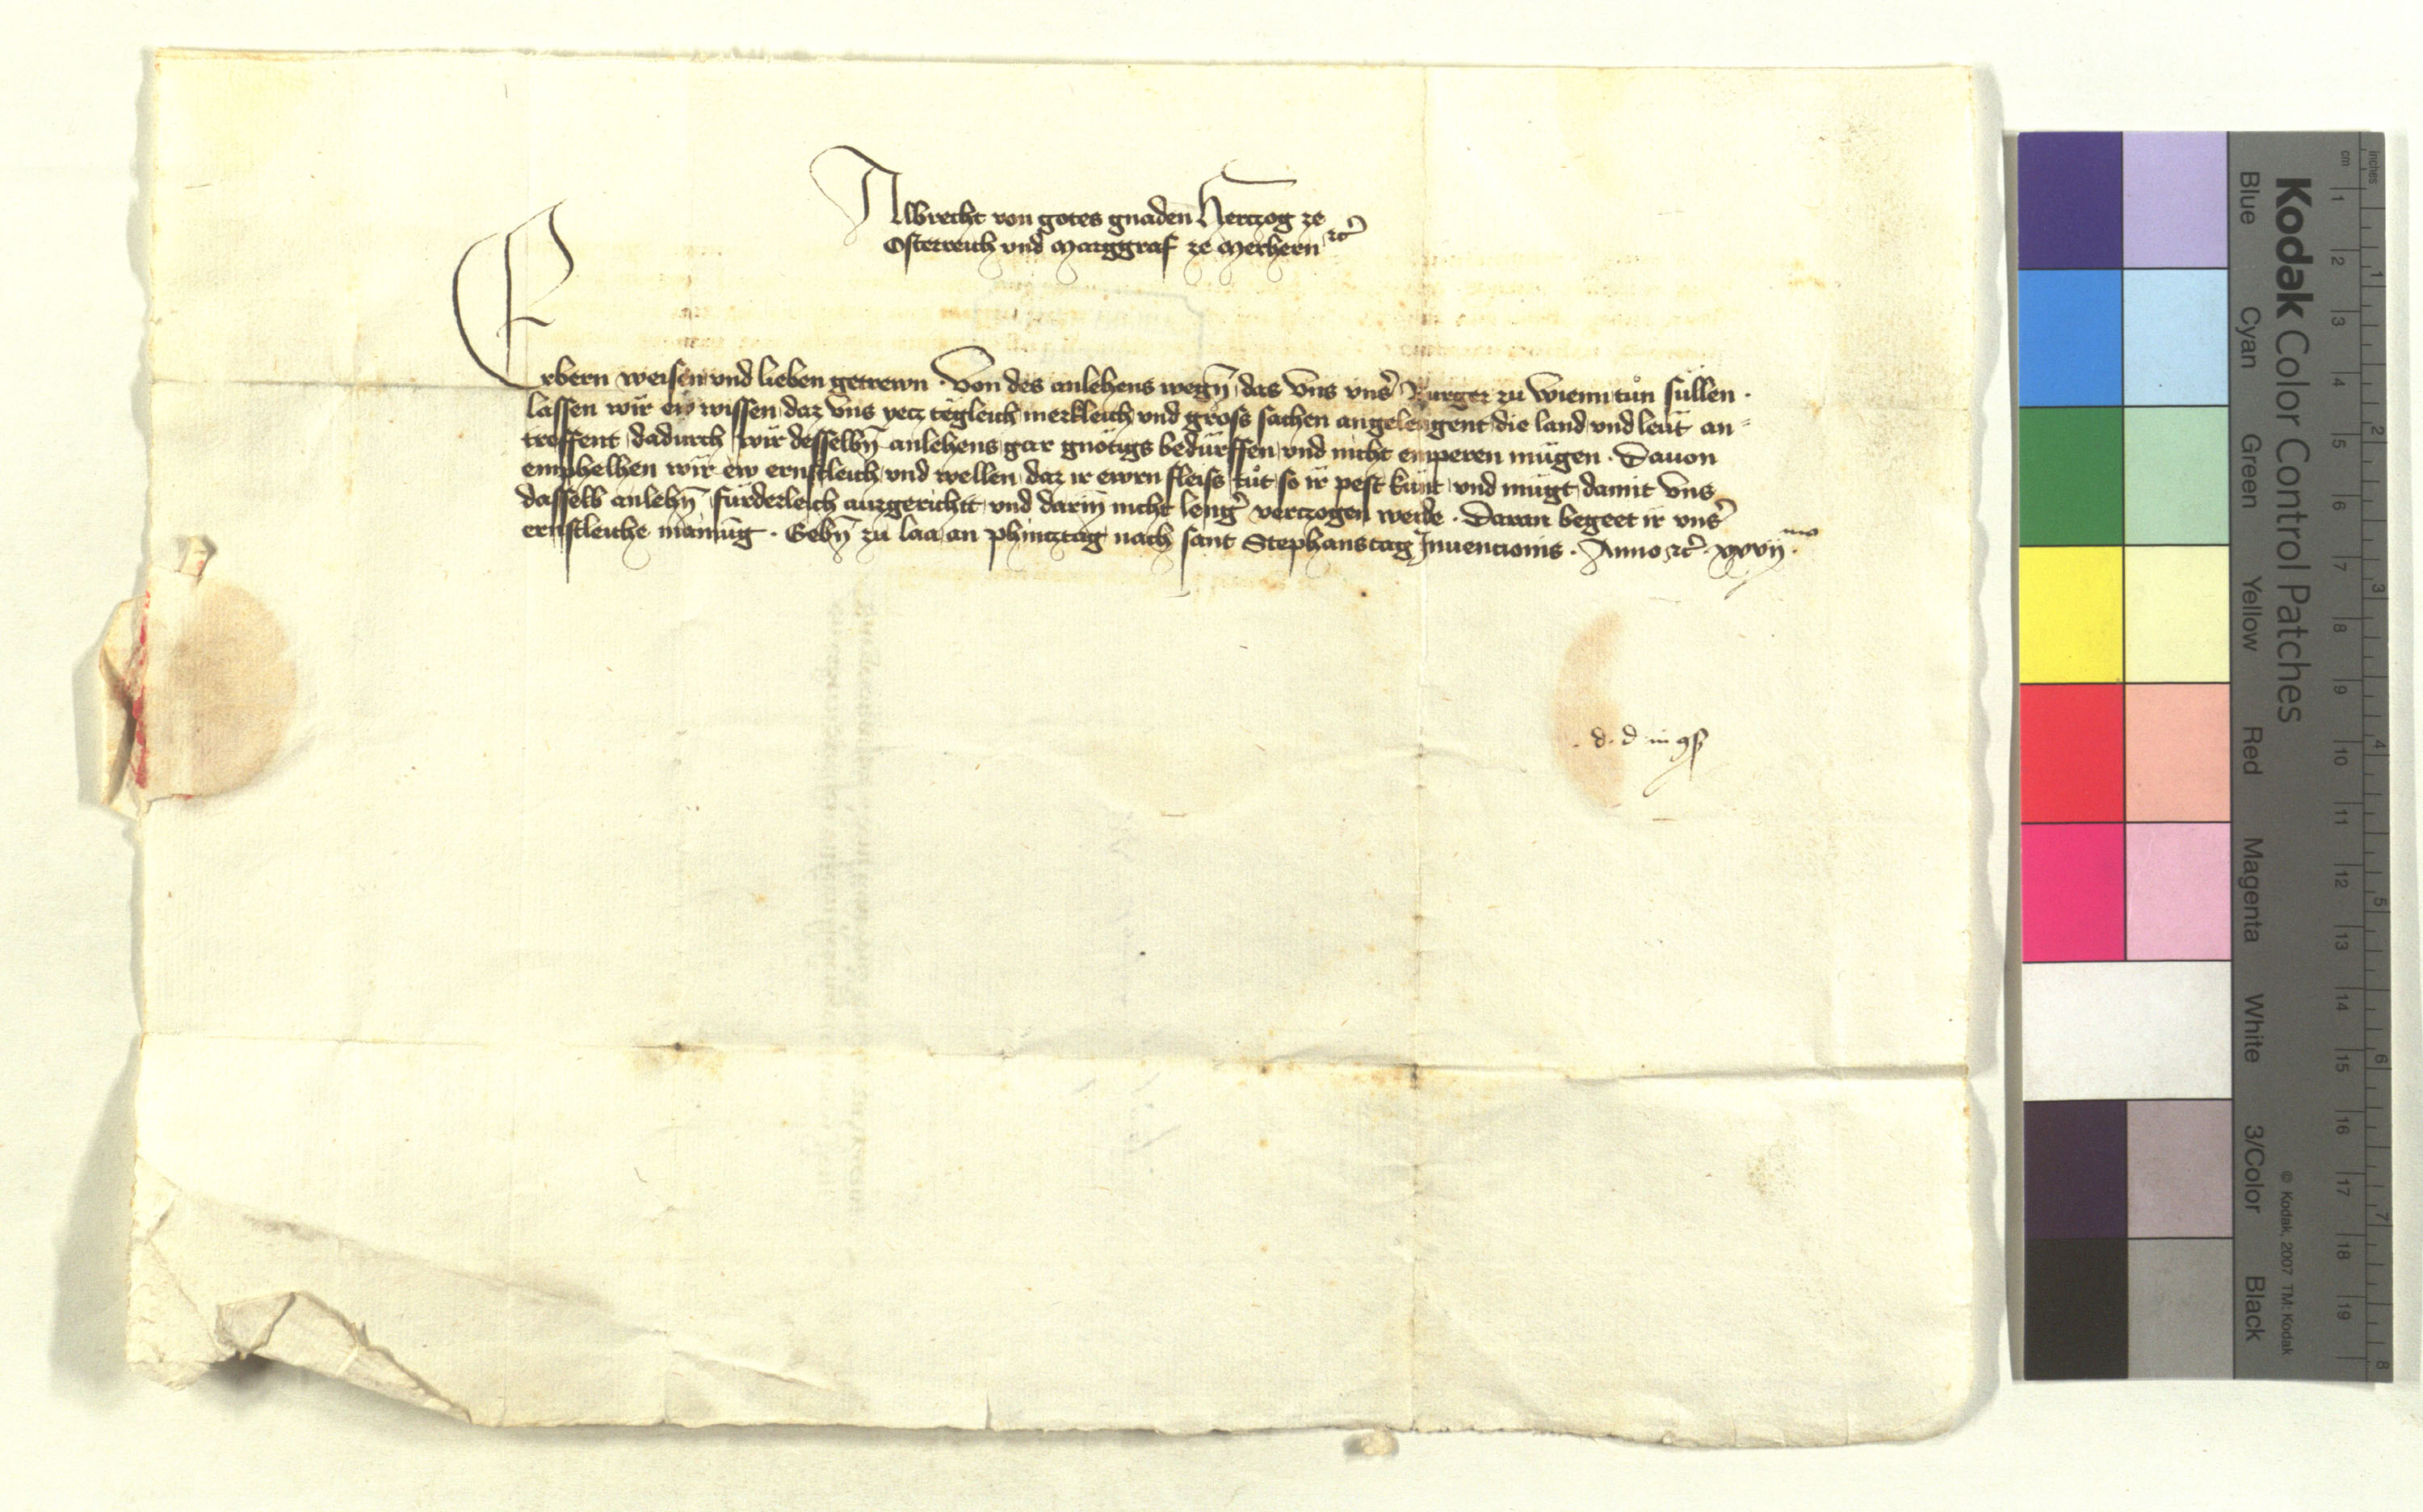 Albrecht von gotes gnaden Hertzog ze
Osterreich vnd Marggraf ze Merhern etc̃
Erbern weisen vnd lieben getrewn · Von des anlehens wegn̄ das vns vnsˀ Burger zu Wienn tůn sullen ·
lassen wir ew wissen daz vns yetz tëgleich merkleich vnd gross sachen angelengent die land vnd leüt an-
treffent dadurch wir desselbn̄ anlehens gar gnötigs bedürffen vnd nicht emperen mügen · Dauon
emphelhen wir ew ernstleich vnd wellen daz ir ewrn fleiss tůt so ir pest künt vnd mügt damit vns
dasselb anlehn̄ fürderleich auzgerichtt vnd darin̄ nicht lengˀ vertzogen werde · Daran begeet ir vnsˀ
ernstleiche manūg · Gebn̄ zu laa an phintztag nach sant Stephanstag Inuencionis · Anno etc̃ · xxvij mo ·
. d. d in 9ß
Kodak Color Control Patches
Blue Cyan Green Yellow Red Magenta White 3/Color Black
© Kodak, 2007 TM: Kodak
inches 1 2 3 4 5 6 7 8
cm 1 2 3 4 5 6 7 8 9 10 11 12 13 14 15 16 17 18 19